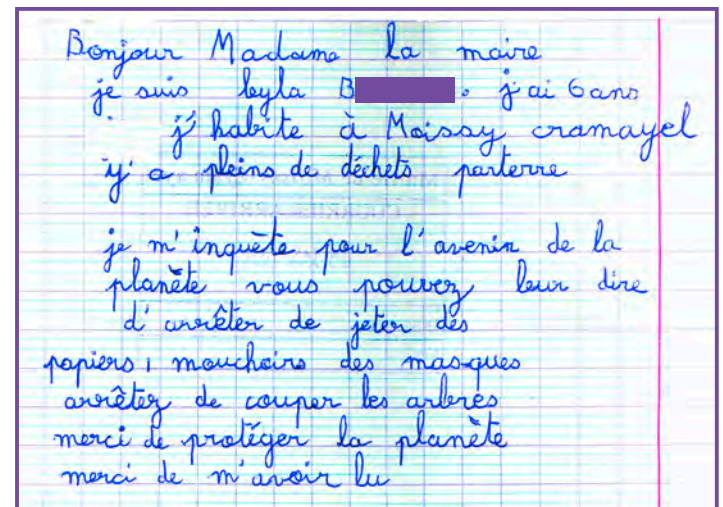 Bonjour Madame la maire
je suis leyla B . j'ai 6 ans
j'habite à Moissy cramayel
y' a pleins de déchets parterre
je m'inquète pour l'avenir de la
planète vous pouvez leur dire
d'arrêter de jeter des
papiers, mouchoirs des masques
arrêtez de couper les arbres
merci de protéger la planète
merci de m'avoir lu